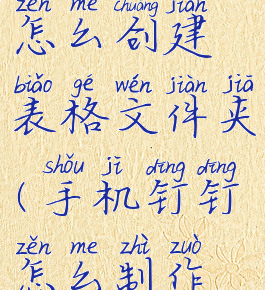 zěn me chuàng jiàn
怎么创建
biǎo gé wén jiàn jiā
表格文件夹
shǒu jī dīng dīng
(手机钉钉
zěn me zhì zuò
怎么制作